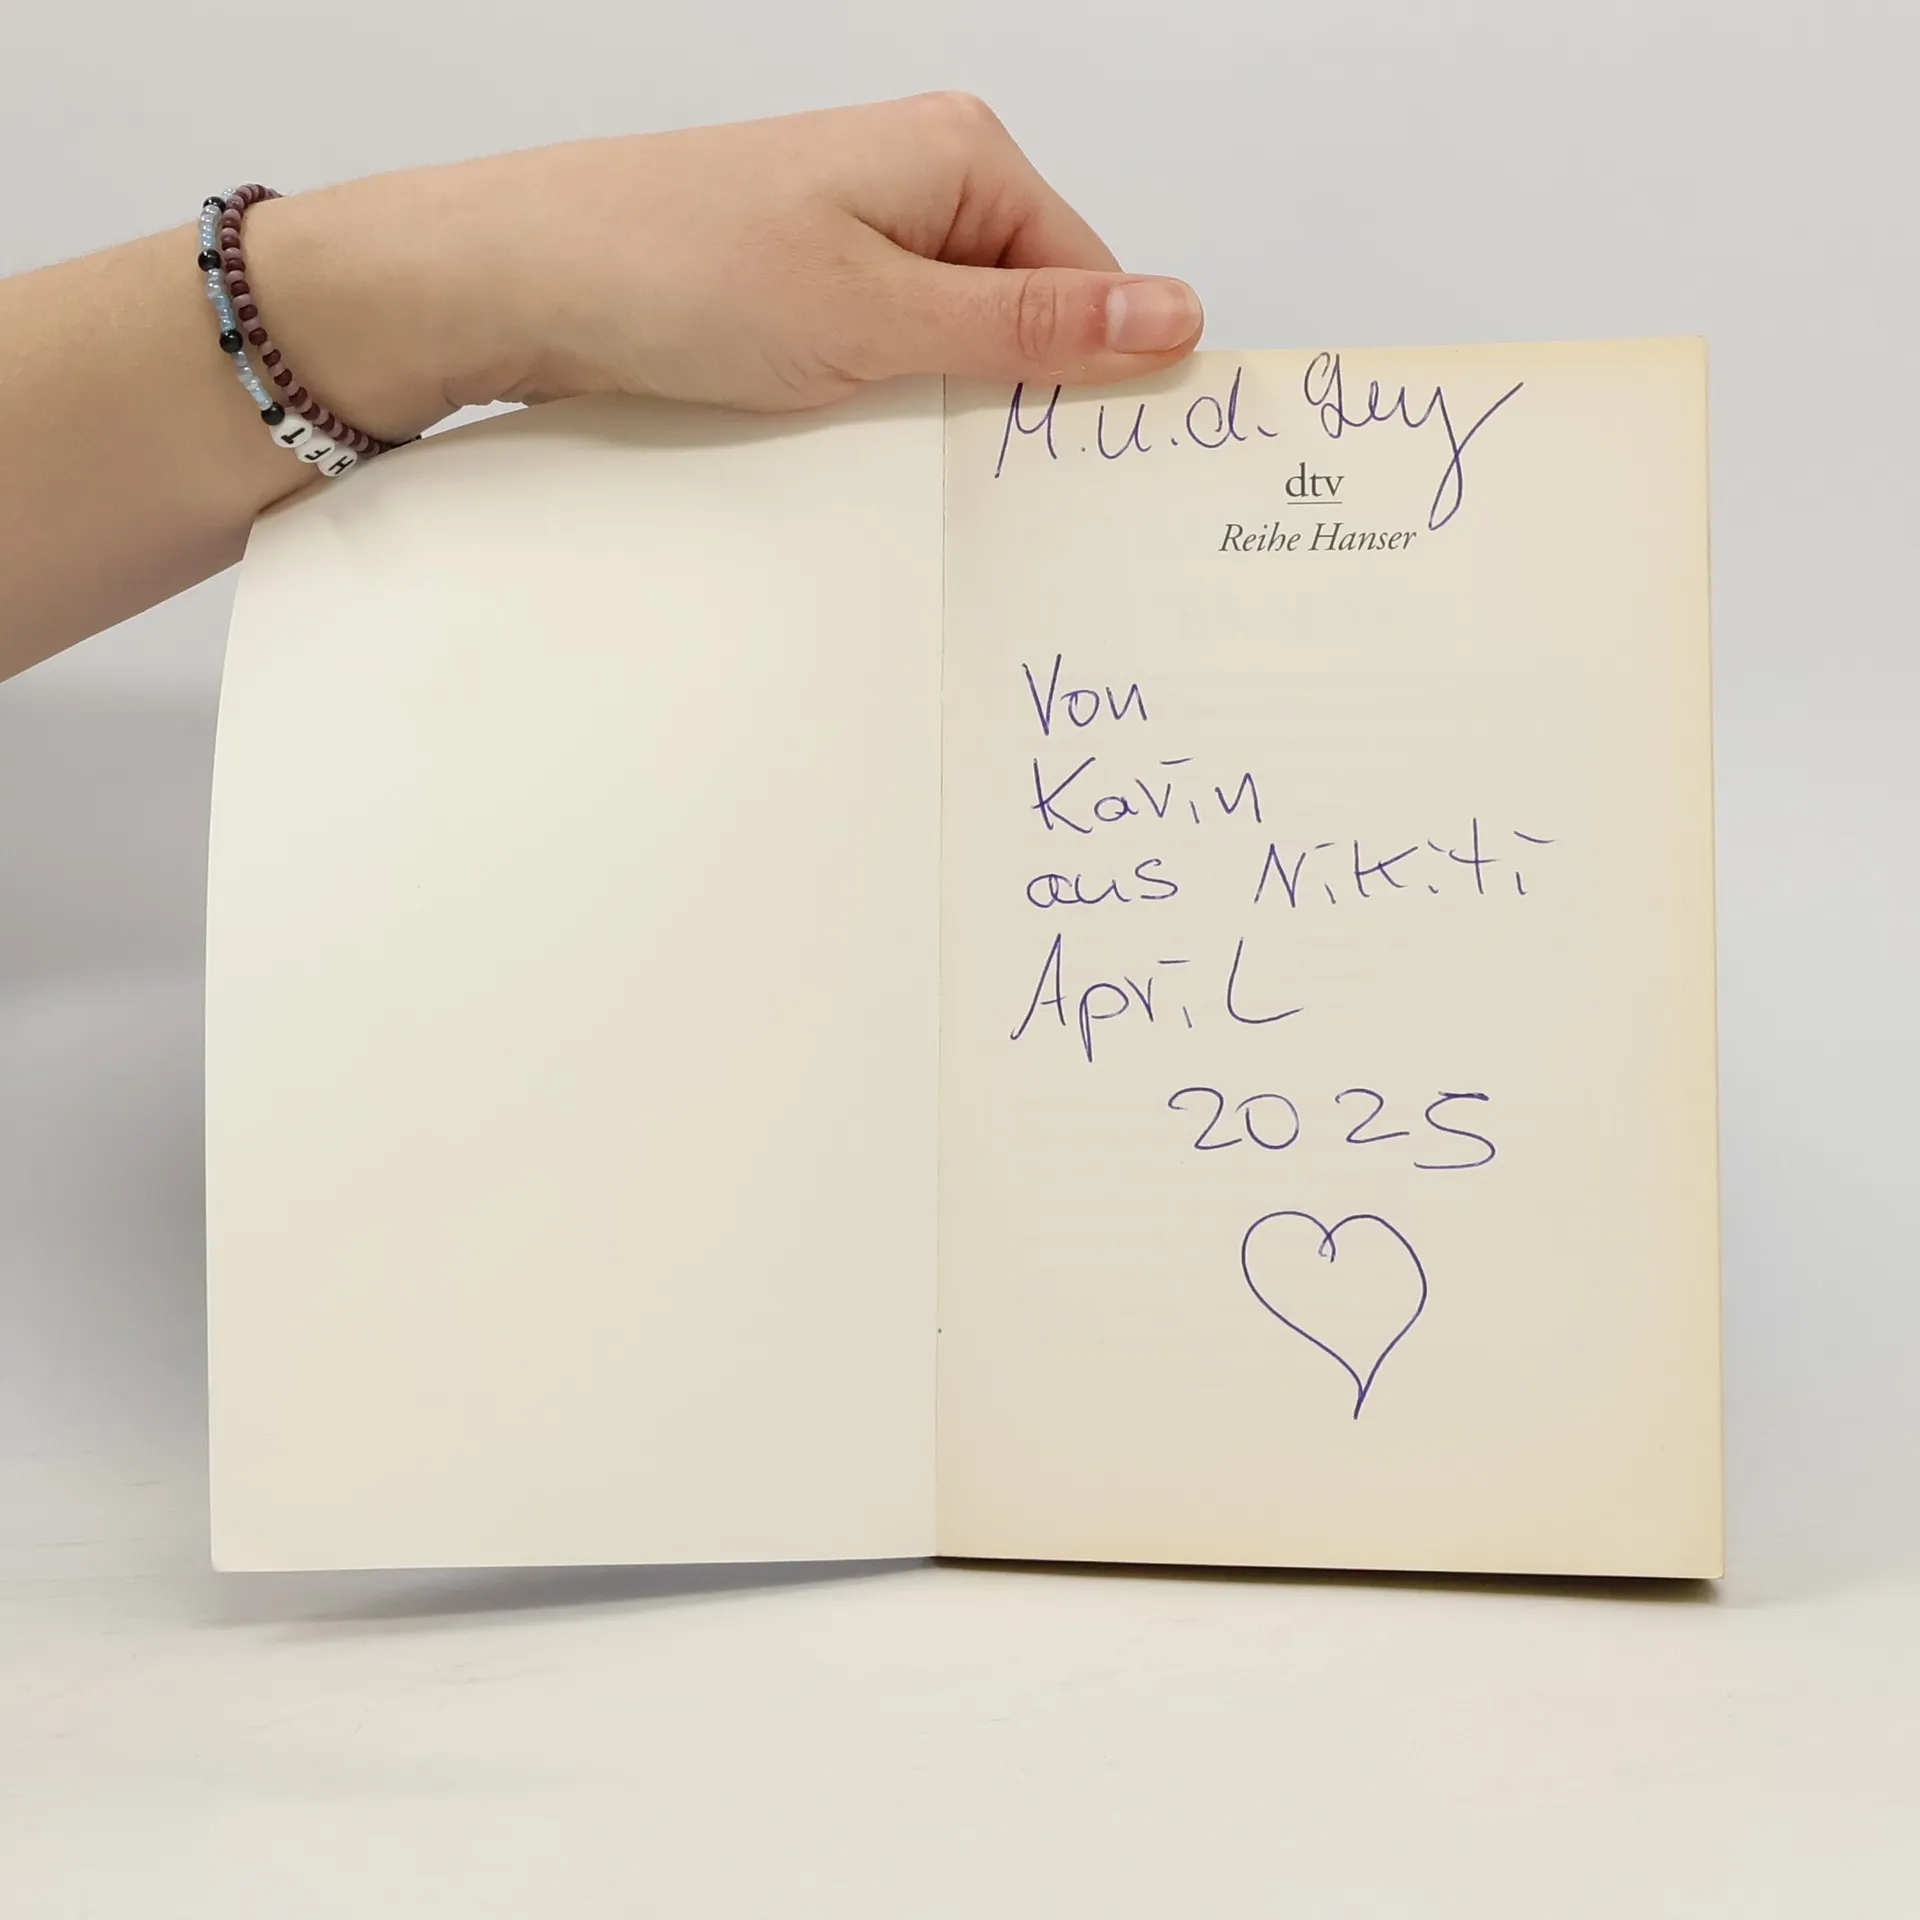 M.u.d. Guy
dtv
Reihe Hanser
Von
Karin
aus Nikiti
April
2025
T F H